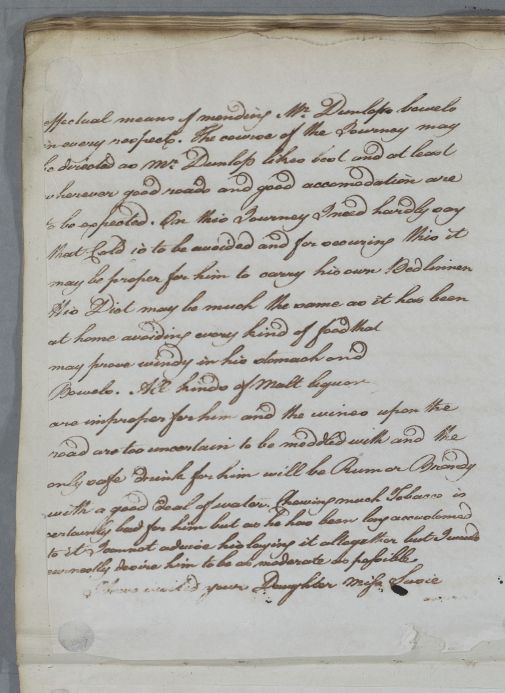 effectual means of mending Mr. Dunlops bowels
in every respect. The course of the Journey may
be directed as Mr. Dunlop likes best and at least
wherever good roads and good accomodation are
to be expected. On this Journey I need hardly say
that Cold is to be avoided and for securing this it
may be proper for him to carry his own Bedlinnen
His Diet may be much the same as it has been
at home avoiding every kind of food that
may prove windy in his stomach and
Bowels. All kinds of Malt liquor
are improper for him and the wines upon the
road are too uncertain to be meddled with and the
only safe drink for him will be Rum or Brandy
with a good deal of water. Chewing much Tobacco is
certainly bad for him but as he has been long accustomed
to it I cannot advise his laying it altogether but I would
earnestly desire him to be as moderate as possible
I have visited your Daughter Miss Susie